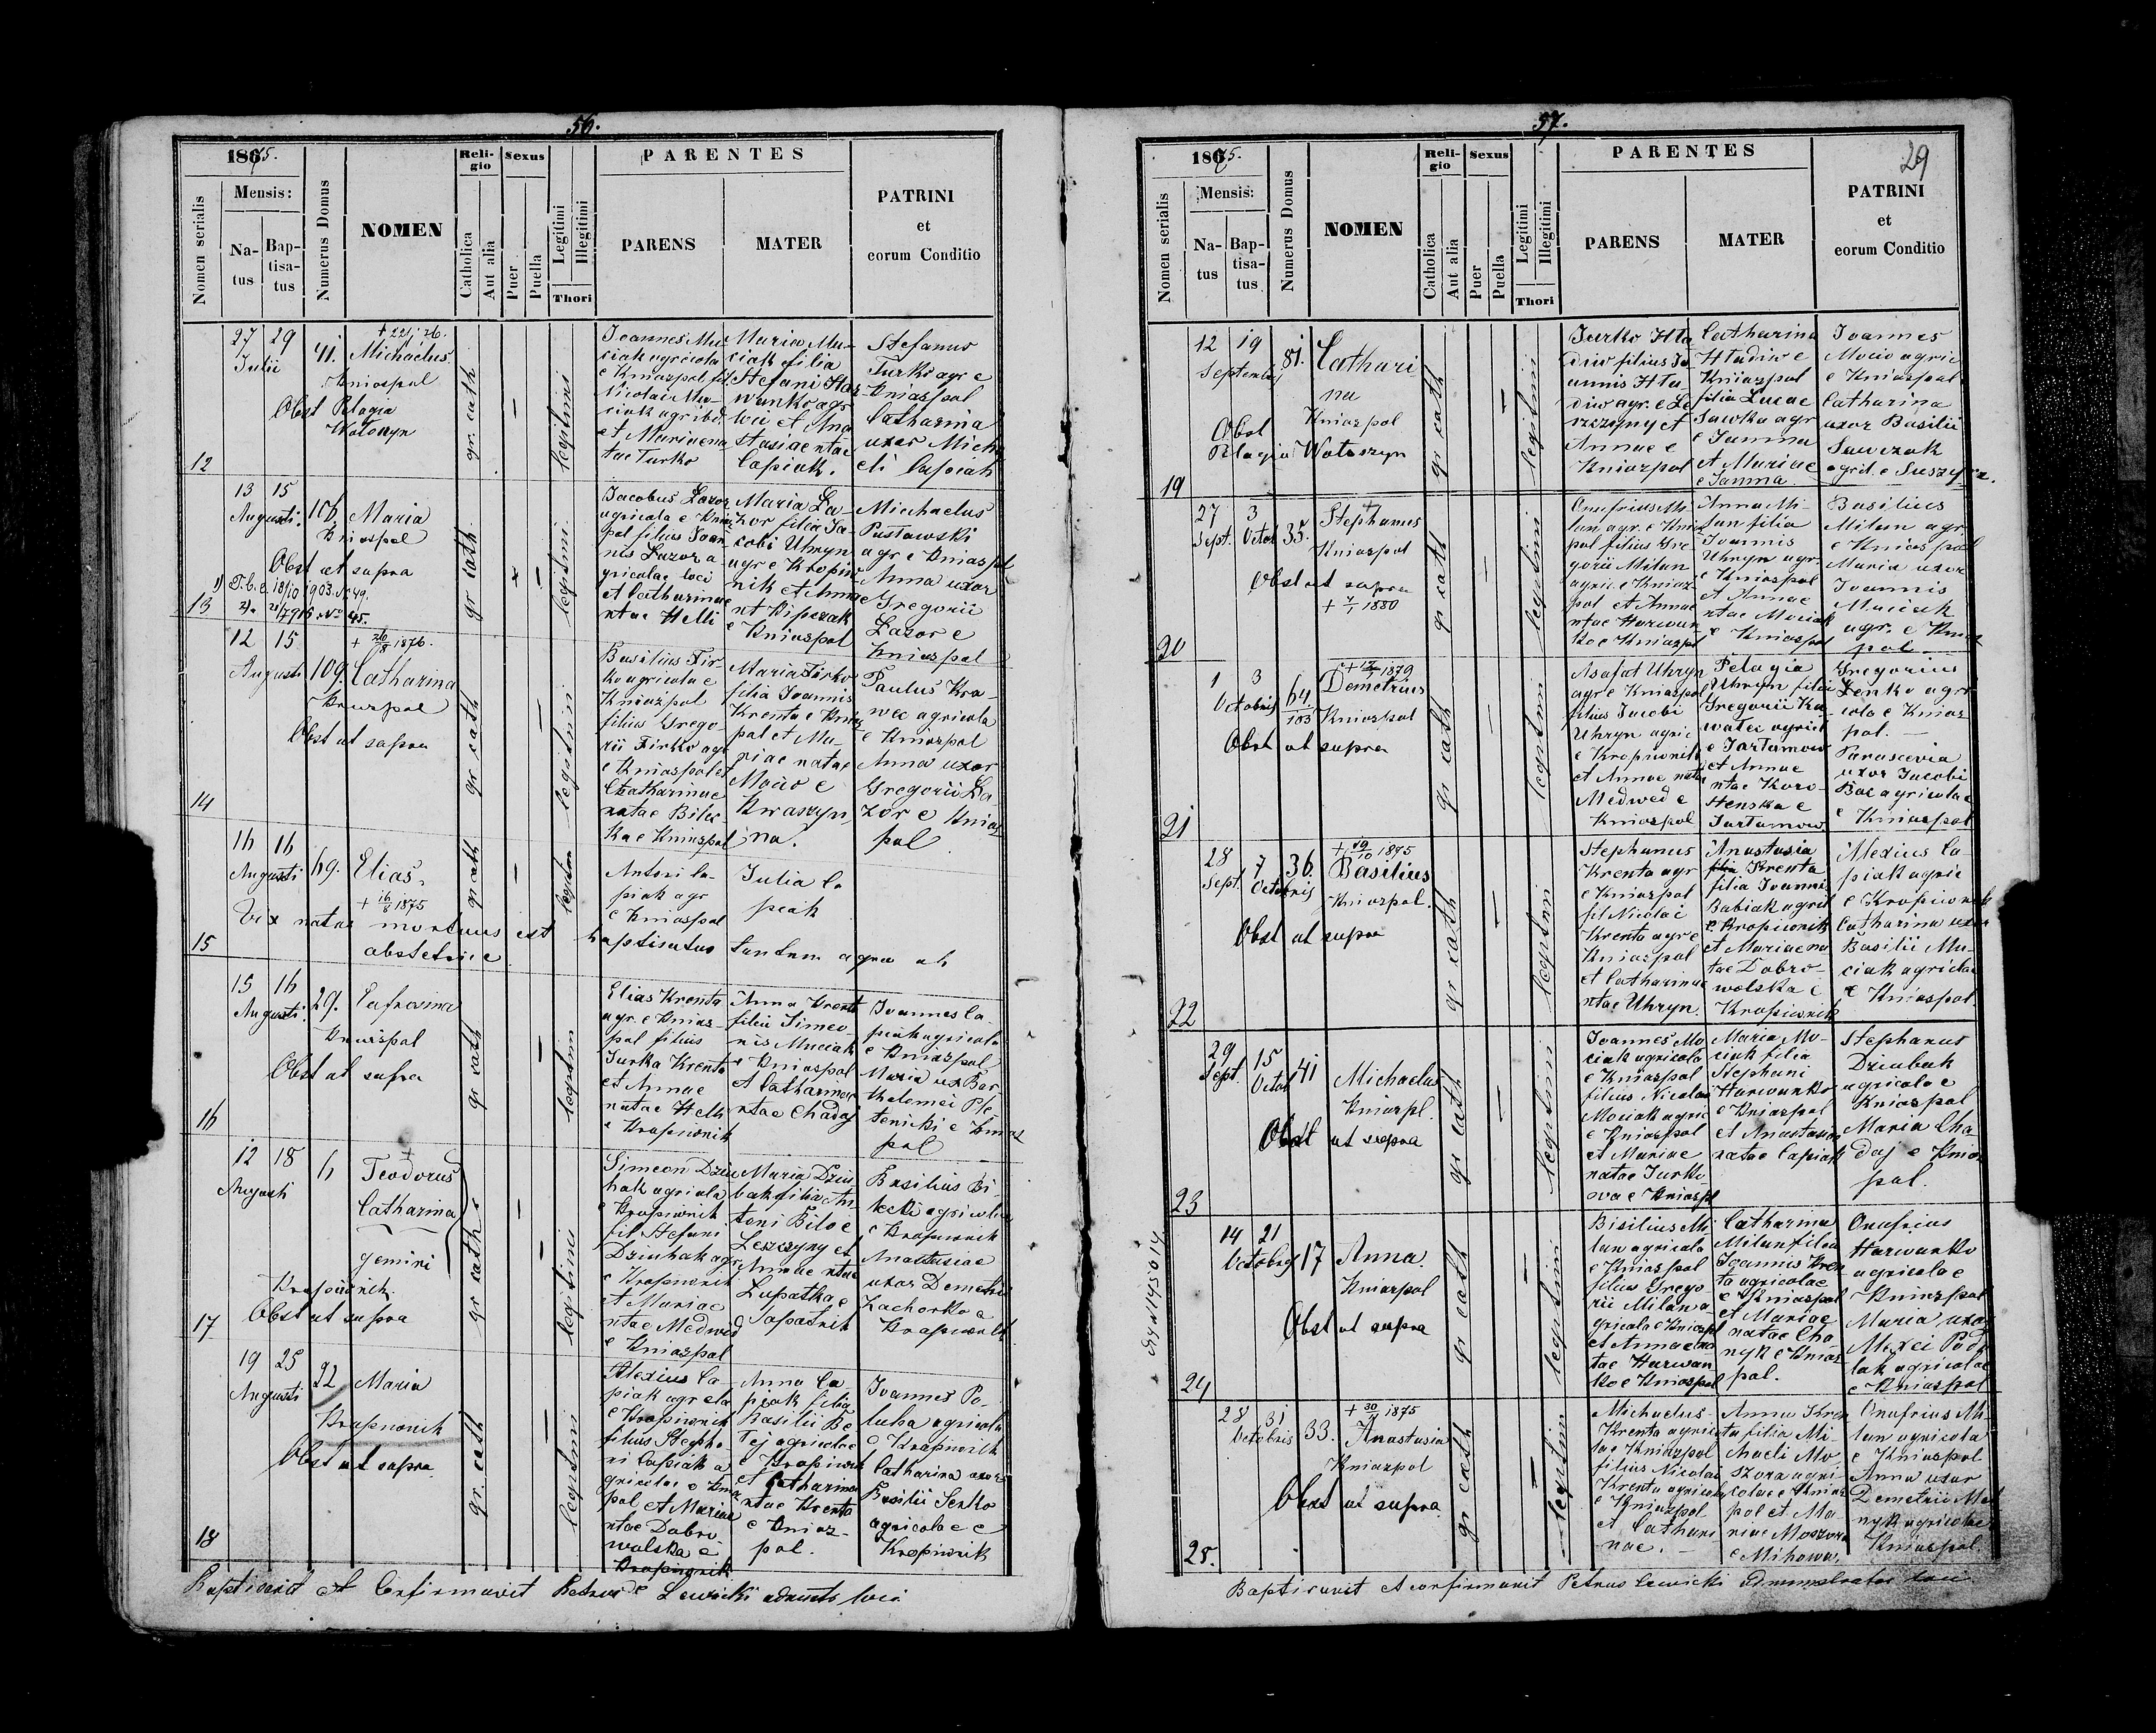 56.
1875.
Nomen serialis
Mensis:
Natus
Baptisatus
Numerus Domus
NOMEN
Religio
Catholica
Aut alia
Sexus
Puer
Puella
Legitimi
Illegitimi
Thori
PARENTES
PARENS
MATER
PATRINI
et
eorum Conditio
12
27 29
Julii
41.
Michaelus
Kniaspol
Obst Pelagia
Wotoszyn
gr. cath
legitimi
Nicolai Mu-
ciak agr ibid.
et Mariae na
tae Turko
Maria Mu-
ciak filia
Stefani Har
wanko agr
loci et Ana
stasiae ntae
Capiak.
Stefanus
Turko agr e
Kniaspol
Catharina
uxor Micha
eli Capiak
13
13 15
Augusti.
106.
Maria
Kniaspol
Obst ut supra
gr cath
legitimi
Jacobus Lazor
agricola e Kniaz
pol filius Joan
nis Lazor a-
gricolae loci
et Catharinae
ntae Helli
Maria La-
zor filia Ja-
cobi Uhryn
agr e Kropiw
nik et Anna
e Kniaspol
Michaelus
Pustowski
agr e Kniaspl
Anna uxor
Gregorii
Lazor e
Kniaspol
14
12 15
Augusti
109.
+ 26/8 1876.
Catharina
Obst ut supra
gr cath
legitimi
Basilius Fir-
ko agricola e
Kniazpol
filius Grego-
rii Firko agr
e Kniaspol et
Catharinae
natae Bilec
ka e Kniaspol
Maria Firko
filia Joannis
Krenta e Kniaz
pol et Ma-
riae natae
Macio e
Kwaszyn
na.
Paulus Kra-
wec agricola
e Kniazpol
Anna uxor
Gregorii La-
zor e Kniaz
pol
15
16 16
Augusti
69.
Elias.
+ 16/8 1875
gr cath
Antoni Ca-
piak agr
e Kniaspol
Julia Ca
piak
Vix natus mortuus est baptisatus tantum aqua ab
obstetrice
16
15 16
Augusti.
29.
Eufrosina
Obst ut supra
gr cath
legitimi
Elias Krenta
agr e Knias-
pol filius
Jurka Krenta
et Annae
natae Helli
e Kropiwnik
Anna Krent
filia Simeo-
nis Muciak
e Kniaspol
et Catharinae
ntae Chadaj
Joannes Ca-
piak agricola
e Kniazpol
Maria ux Bar
tholomei Ple
tenicki e Kniaz
pol
17
12 18
Augusti
6
Teodorus
Catharina
gemini
Kropiwnik.
Obst ut supra
gr cath
legitimi
Simeon Dziu
bak agricola
e Kropiwnik
fil Stefani
Dziubak agr
e Kropiwnik
et Mariae
ntae Medwid
e Kniaspol
Maria Dziu
bak filia An
toni Bilo e
Leszczyny et
Annae ntae
Lupatka e
Basilius Bi-
lecki agricola
e Kropiwnik
Anastasiae
uxor Demetrii
Zachorko e
Kropiwnik
18
19 25
Augusti
22
Maria
Kropiwnik
Obst ut supra
gr. cath
legitimi
Alexius Ca-
piak agr ola
e Kropiwnik
filius Stepha-
ni Capiak a
gricolae e Knia
pol et Mariae
ntae Dobro
wolska e
Kropiwnik
Anna Ca
piak filia
Basilii Be
lej agricolae
e Kropiwnik
et Catharinae
ntae Krenta
e Knias-
pol.
Joannes Po-
luba agricola
e Kropiwnik
Catharina uxor
Basilii Senko
agricolae e
Kropiwnik
Baptisavit et Confirmavit Petrus Lewicki admnstr loci
57.
29
1875.
Nomen serialis
Mensis:
Natus
Baptisatus
Numerus Domus
NOMEN
Religio
Catholica
Aut alia
Sexus
Puer
Puella
Legitimi
Illegitimi
Thori
PARENTES
PARENS
MATER
PATRINI
et
eorum Conditio
19
12 19
Septembr
81.
Cathari
na
Kniaspol
Obst
Pelagia Wotoszyn
gr cath
legitimi
Jurko Hla
diw filius Jo
annis Hla-
diw agr. e Le
szczyny et
Annae e
Kniazpol
Catharina
Hladiw e
Kniazpol
filia Lucae
Sawka agr
e Jamna
et Mariae
e Jamna.
Joannes
Macio agric
e Kniaspol
Catharina
uxor Basilii
Sawczak
20
27 3
Sept. Octob
35.
Stephanus
Kniaspol
Obst ut supra
+ 7/1 1880
gr cath
legitimi
Onufrius Mi
lan agr. e Knia
pol filius Gre
gorii Milan
agric e Kniaz
pol et Annae
ntae Harwan
ko e Kniazpl
Anna Mi-
lan filia
Joannis
Uhryn agr.
e Kniaspol
et Annae
ntae Maciak
e Kniaspol
Basilius
Milan agr
e Kniaspol
Maria uxor
Joannis
Muciak
agr. e Knia
pol
21
1 3
Octobris
64.
103
Demetrius
Kniaspol
Obst ut supra
gr cath
legitimi
Asafat Uhryn
agr e Kniaspol
filius Jacobi
Uhryn agric
e Kropiwnik
et Annae natae
Medwed e
Kniaspol
Pelagia
Uhryn filia
Gregorii Ka
walec agricol
e Jartamow
et Annae
ntae Koro-
Jartamow
Gregorius
Senko agri
cola e Kniaz
pol.
Parascevia
uxor Jacobi
Bac agricolae
e Kniaspol
22
28 7
Sept. Octobris
36.
+ 19/10 1875
Basilius
Kniaspol.
Obst ut supra
gr cath
legitimi
Stephanus
Krenta agr
e Kniaspol
fil Nicolai
Krenta agr e
Kniaspol
et Catharinae
ntae Uhryn.
Anastasia
Krenta
filia Joanni
Babiak agrit
e Kropiwnik
et Mariae na
tae Dobro-
wolska e
Kropiwnik
Alexius Ca-
piak agric
e Kropiwnik
Catharina uxor
Basilii Mu-
ciak agricolae
e Kniaspol.
23
29 15
Sept. Octob
41
Michaelus
Kniazpl.
Obst ut supra
gr cath
legitimi
Joannes Mo
ciak agricola
e Kniaspol
filius Nicolai
Mociak agric
e Kniaspol
et Mariae
natae Turko-
wa e Kniaspl
Maria Mo-
ciak filia
Stephani
Harwanko
e Kniazpol
et Anastasiae
natae Capiak
Stephanus
Dziubak
agricola e
Kniaspol
Maria Cha-
daj e Kniaz
pol.
24
14 21
Octobris
17
Anna.
Kniazpol
Obst ut supra
gr cath
legitimi
Bisilius Mi
lan agricola
e Kniaspol
filius Grego
rii Milan a-
gricola e Kniazpl
et Annae na
tae Harwan
ko e Kniaspol
Catharina
Milan filia
Joannis Kren
ta agricolae
e Kniaspol
et Mariae
natae Cha
nyk e Kniaz
pol.
Onufrius
Harwanko
agricola e
Kniazpol
Maria uxor
Alexei Pod
lak agricolae
e Kniaspol
25.
28 31
Octobris
33.
+ 30/11 1875
Anastasia
Kniazpol
Obst ut supra
gr cath
legitimi
Michaelus
Krenta agrico
la e Kniazpol
filius Nicolai
Krenta agricola
e Kniazpol
et Cathari
nae.
Anna Kren
ta filia Mi-
chaeli Mo
szora agri-
colae e Kniaz
pol et Ma-
riae Moszora
e Mihowa.
Onufrius Mi-
lan agricola
e Kniaspol
Anna uxor
Demetrii Mel
nyk agricolae
Kniaspol.
Baptisavit et confirmavit Petrus Lewicki administrator loci